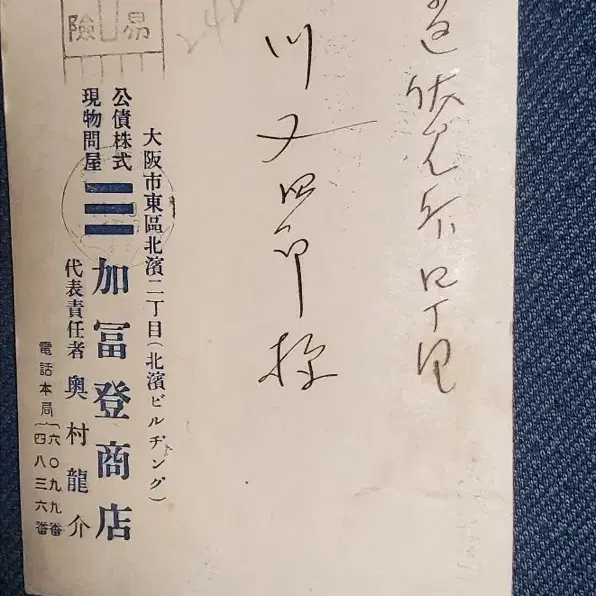 伏見町四丁目
川又四郎様
大阪市東區北濱二丁目(北濱ビルヂング)
公債株式
現物問屋
三加冨登商店
代表責任者 奧村龍介
電話本局(六〇九九番
四八三六番
易
險